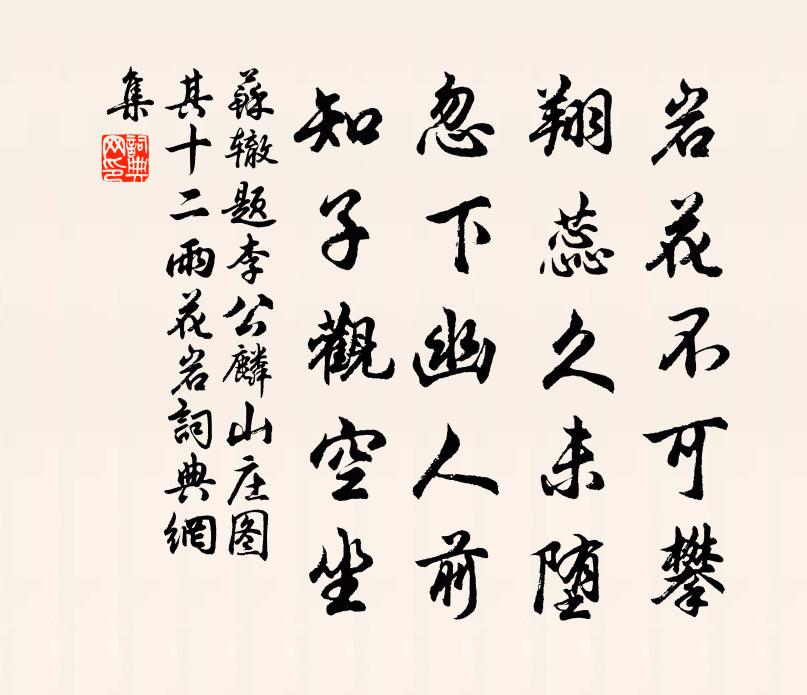 岩花不可攀
翔蕊久未堕
忽下幽人前
知子觀空坐
蘇辙题李公麟山庄图
其十二雨花岩詞典網
集
詞典
网印